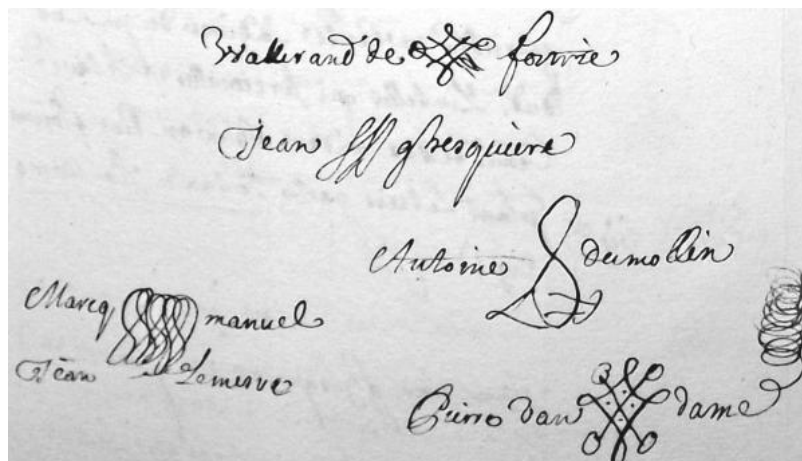 Wallerand de fourie
Jean ghesquiere
Antoine dumollin
Marcq manuel
Jean Lemesre
Pierre Van dame